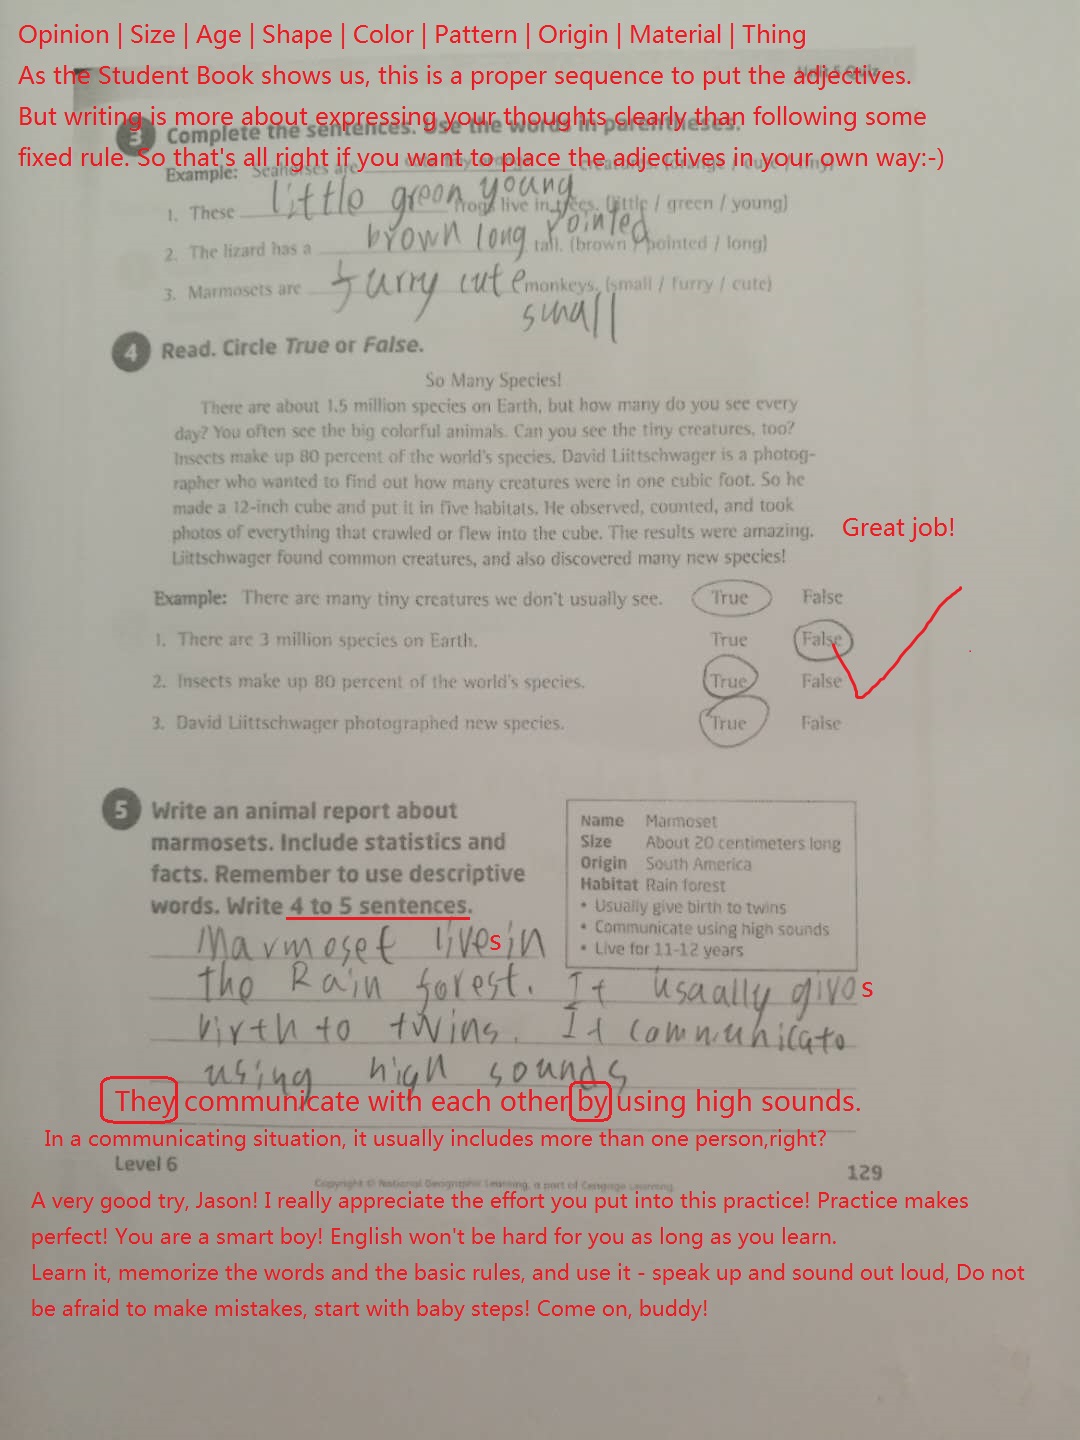 Opinion | Size | Age | Shape | Color | Pattern | Origin | Material | Thing
As the Student Book shows us, this is a proper sequence to put the adjectives.
But writing is more about expressing your thoughts clearly than following some
fixed rule. So that's all right if you want to place the adjectives in your own way:-)
3 Complete the sentences. Use the words in parentheses.
Example: Seahorses are
1. These little green young frogs live in trees. (little / green / young)
2. The lizard has a brown long pointed tail. (brown / pointed / long)
3. Marmosets are furry cute monkeys. (small / furry / cute)
small
4 Read. Circle True or False.
So Many Species!
There are about 1.5 million species on Earth, but how many do you see every
day? You often see the big colorful animals. Can you see the tiny creatures, too?
Insects make up 80 percent of the world's species. David Liittschwager is a photog-
rapher who wanted to find out how many creatures were in one cubic foot. So he
made a 12-inch cube and put it in five habitats. He observed, counted, and took
photos of everything that crawled or flew into the cube. The results were amazing.
Great job!
Liittschwager found common creatures, and also discovered many new species!
Example: There are many tiny creatures we don't usually see. True False
1. There are 3 million species on Earth. True False
2. Insects make up 80 percent of the world's species. True False
3. David Liittschwager photographed new species. True False
5 Write an animal report about
marmosets. Include statistics and
facts. Remember to use descriptive
words. Write 4 to 5 sentences.
Name Marmoset
Size About 20 centimeters long
Origin South America
Habitat Rain forest
• Usually give birth to twins
• Communicate using high sounds
• Live for 11-12 years
Marmoset lives in
the Rain forest. It usaally gives
birth to twins. It communicate
using high sounds
They communicate with each other by using high sounds.
In a communicating situation, it usually includes more than one person,right?
Level 6
129
Copyright © National Geographic Learning, a part of Cengage Learning.
A very good try, Jason! I really appreciate the effort you put into this practice! Practice makes
perfect! You are a smart boy! English won't be hard for you as long as you learn.
Learn it, memorize the words and the basic rules, and use it - speak up and sound out loud, Do not
be afraid to make mistakes, start with baby steps! Come on, buddy!